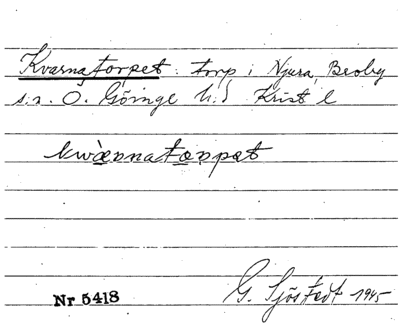 Kvarnatorpet: torp i Njura, Broby
s:n. Ö. Göinge h:d Krist l
kwàrnatorpet
Nr 5418 G. Sjöstedt 1945